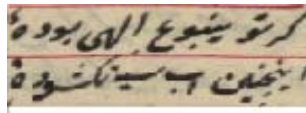 گر تو ینبوع الهی بوده
اینچنین آب سیه نگشوده